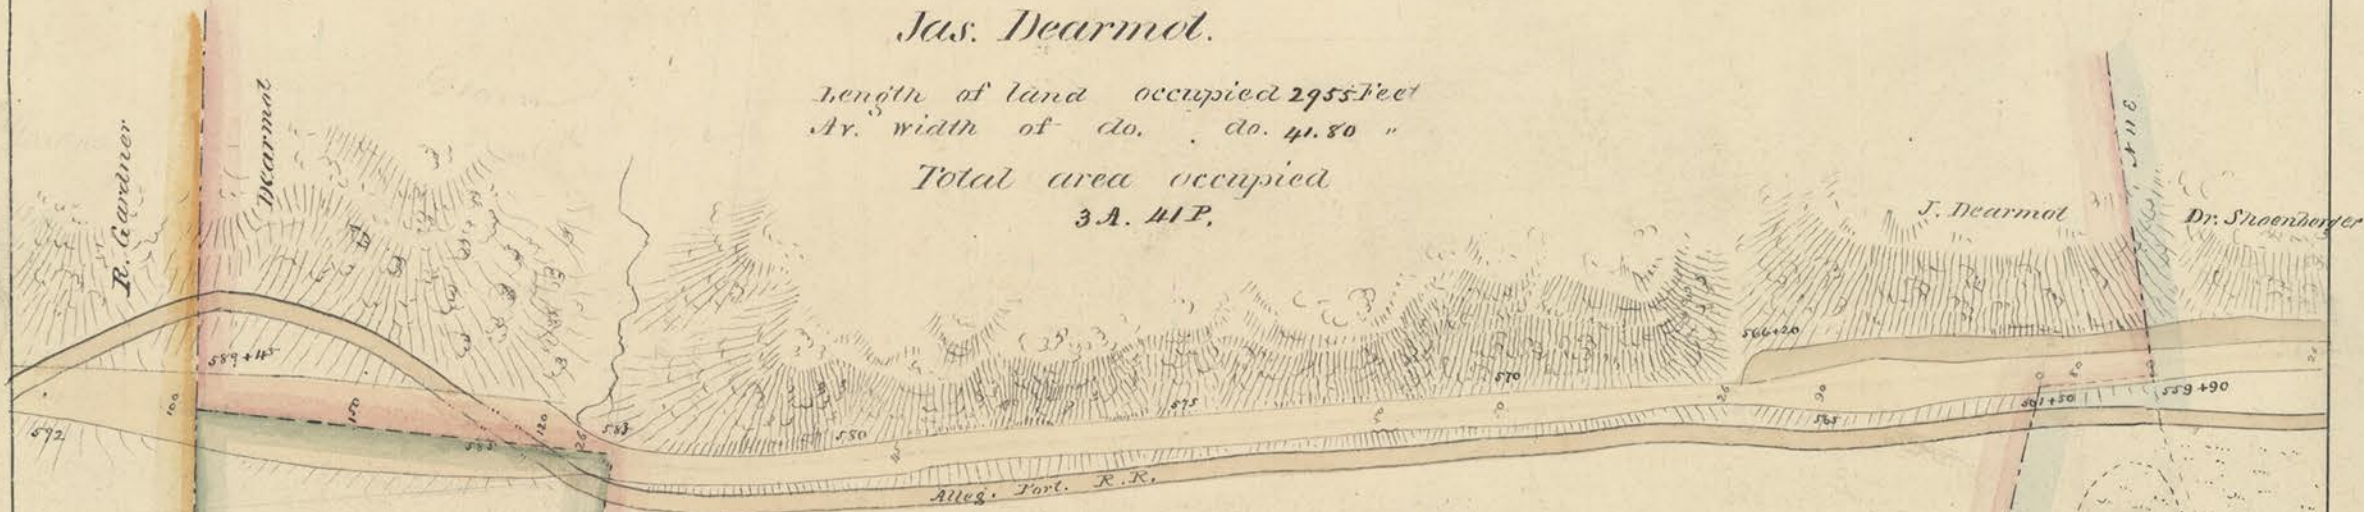 Jas. Dearmot.
Length of land occupied 2955 Feet
Av. width of do. do. 41.80 "
Total area occupied
3 A. 41 P.
R. Gardner
Dearmot
J. Dearmot
Dr. Shoenberger
589+45
566+20
559+90
561+50
592
585
583
580
575
570
565
100
150
120
26
45
50
50
26
90
0
50
Alleg. Port. R.R.